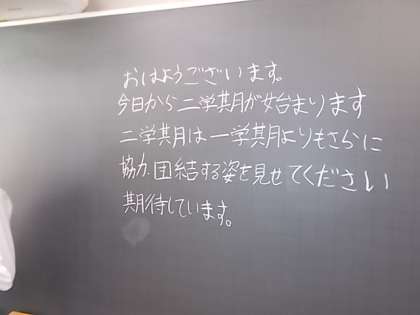 おはようございます。
今日から二学期が始まります
二学期は一学期よりもさらに
協力、団結する姿を見せてください
期待しています。